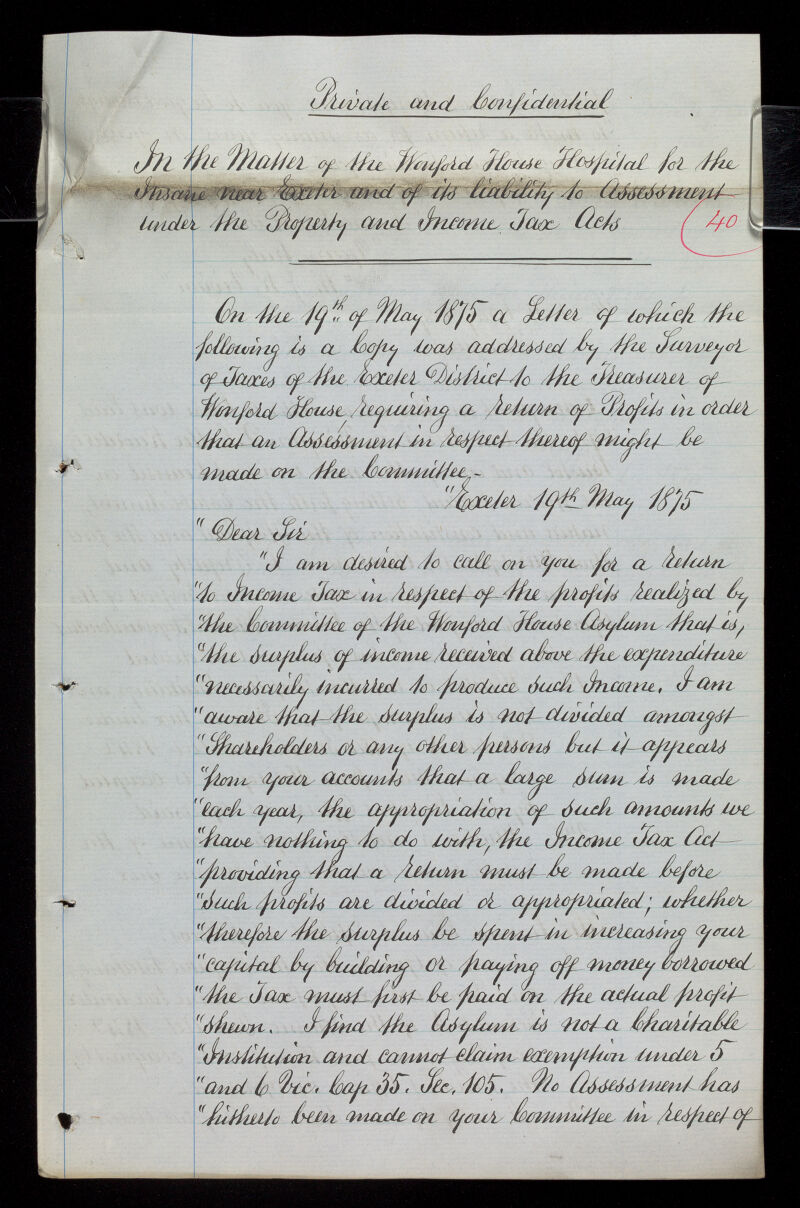 Private and Confidential
In the Matter of the Wonford House Hospital for the
Insane near Exeter and of its liability to Assessment
under the Property and Income Tax Acts
40
On the 19th of May 1875 a Letter of which the
following is a Copy was addressed by the Surveyor
of Taxes of the Exeter District to the Treasurer of
Wonford House, requiring a return of Profits in order
that an Assessment in respect thereof might be
made on the Committee.-
"Exeter 19th May 1875
" Dear Sir
"I am desired to call on you for a return
"to Income Tax in respect of the profits realized by
"the Committee of the Wonford House Asylum that is,
"the surplus of income received above the expenditure
"necessarily incurred to produce such Income. I am
"aware that the surplus is not divided amongst
"Shareholders or any other persons but it appears
"from your accounts that a large sum is made
"each year, the appropriation of such amounts we
"have nothing to do with, the Income Tax Act
"providing that a return must be made before
"such profits are divided or appropriated; whether
"therefore the surplus be spent in increasing your
"capital by building or paying off money borrowed
"the Tax must first be paid on the actual profit
"shewn. I find the Asylum is not a Charitable
"Institution and cannot claim exemption under 5
"and 6 Vic. Cap 35. Sec. 105. No Assessment has
"hitherto been made on your Committee in respect of